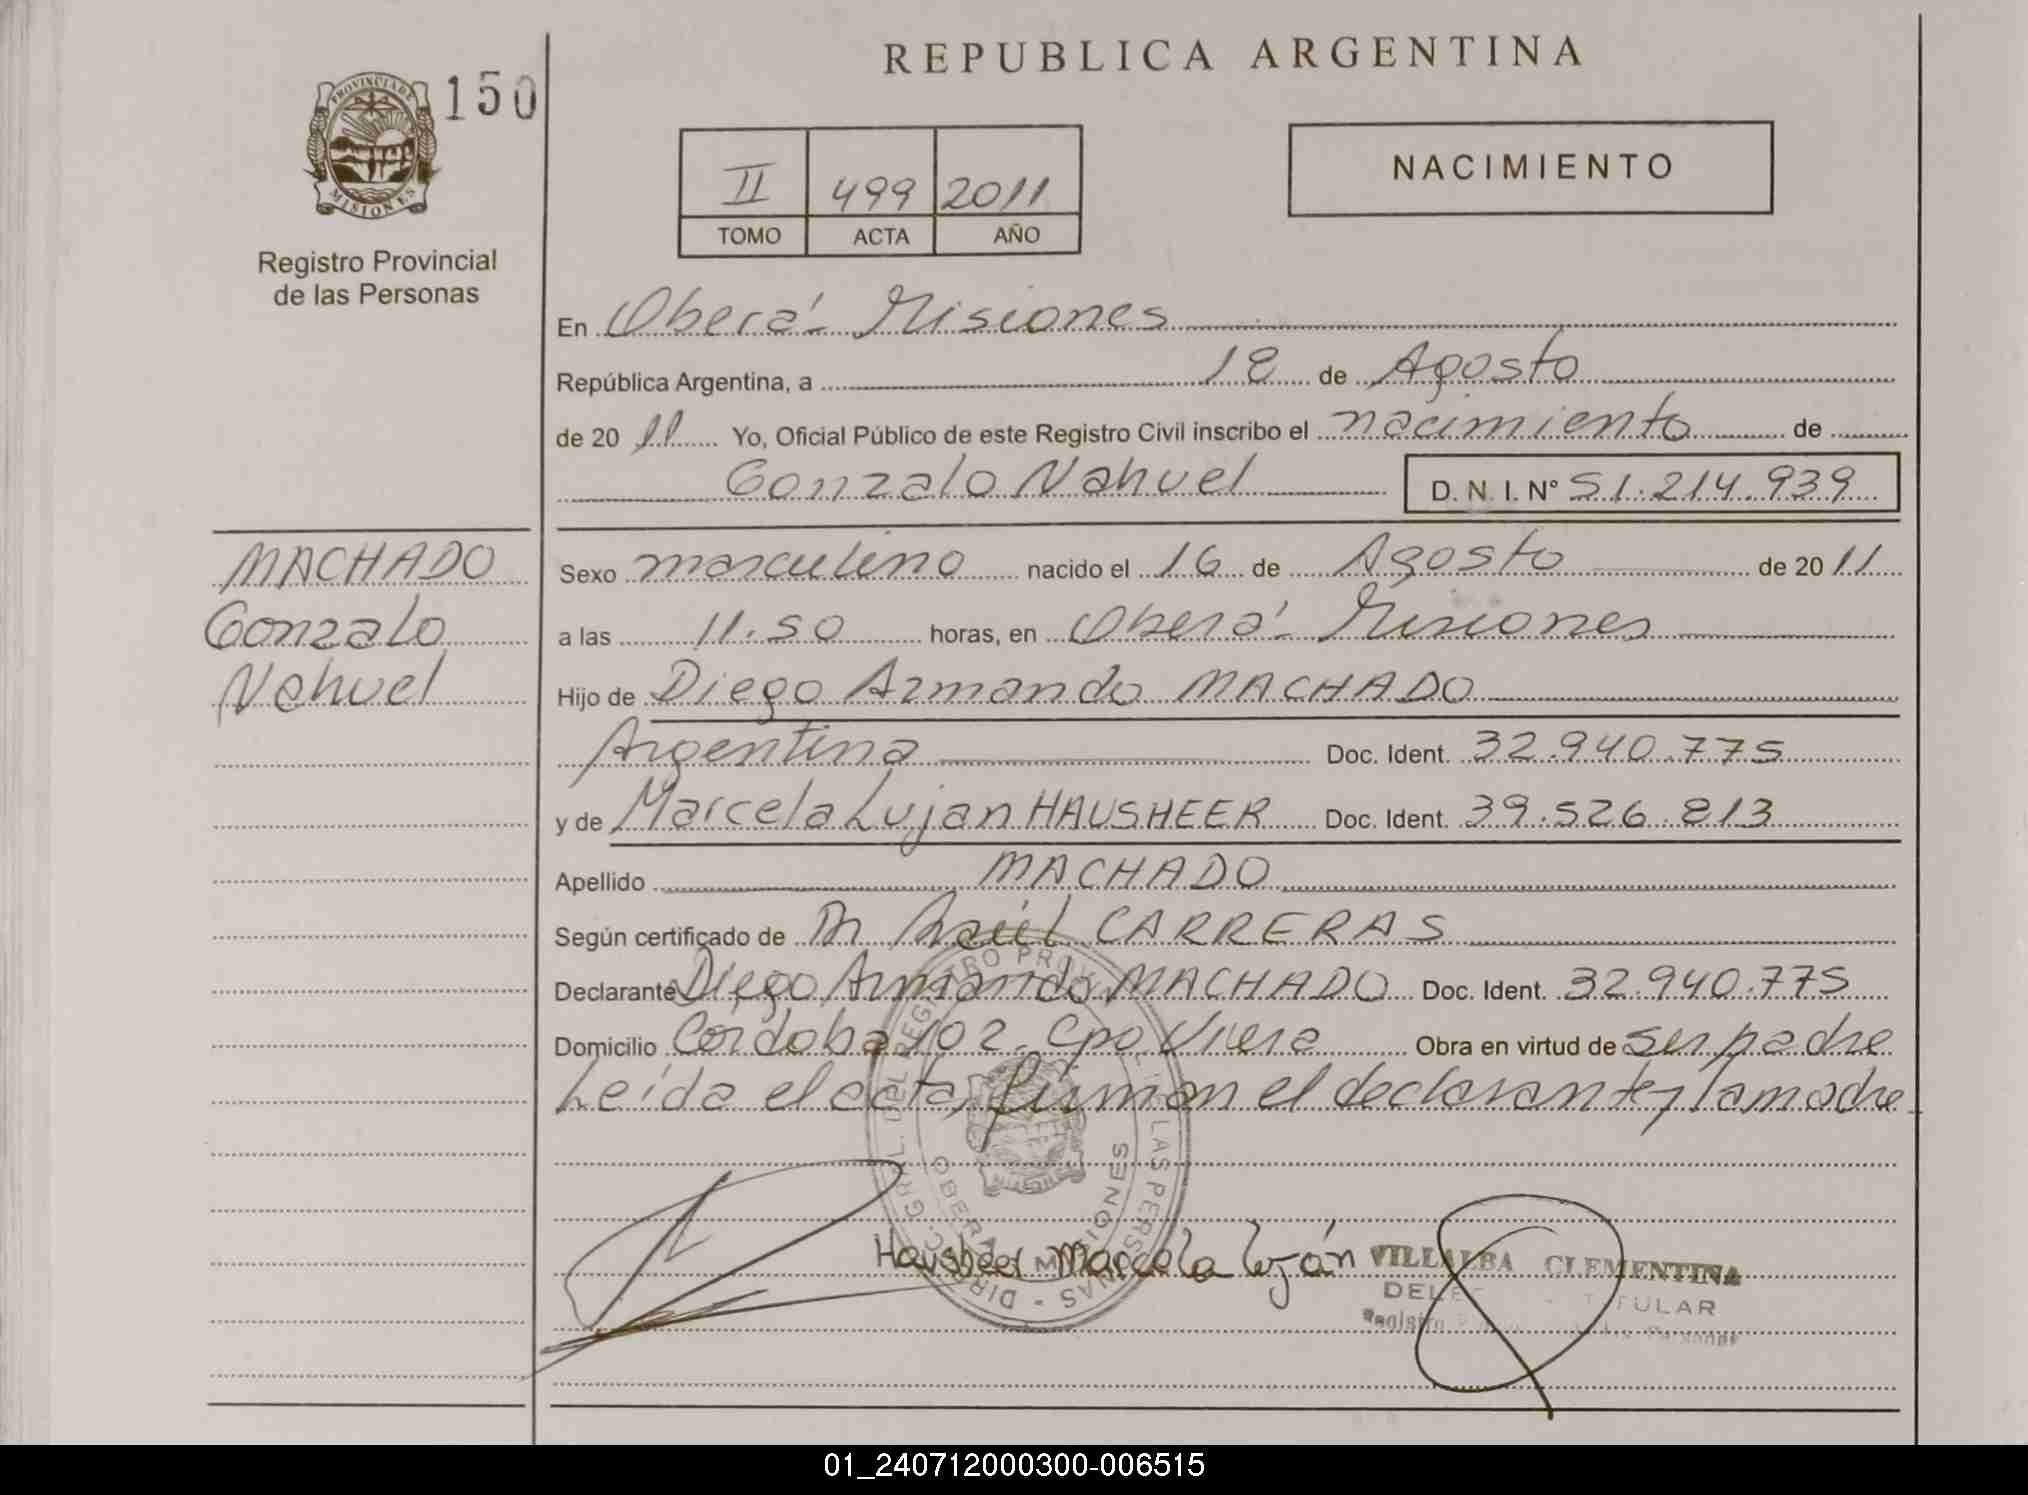 REPUBLICA ARGENTINA
150
PROVINCIA DE
MISIONES
Registro Provincial
de las Personas
NACIMIENTO
II 499 2011
TOMO ACTA AÑO
En Oberá - Misiones
República Argentina, a 18 de Agosto
de 20 11 Yo, Oficial Público de este Registro Civil inscribo el nacimiento de
Gonzalo Nahuel D. N. I. N° 51.214.939
MACHADO
Gonzalo
Nahuel
Sexo masculino nacido el 16 de Agosto de 20 11
a las 11.50 horas, en Oberá - Misiones
Hijo de Diego Armando MACHADO
Argentina Doc. Ident. 32.940.775
y de Marcela Lujan HAUSHEER Doc. Ident. 39.526.813
Apellido MACHADO
Según certificado de Dr. Raúl CARRERAS
Declarante Diego Armando MACHADO Doc. Ident. 32.940.775
Domicilio Cordoba 102 - Cpo Viera Obra en virtud de ser padre
Leída el acta, firman el declarante y la madre
Hausheer Marcela Luján
VILLALBA CLEMENTINA
TITULAR
Registro
OBERA MISIONES
01_240712000300-006515